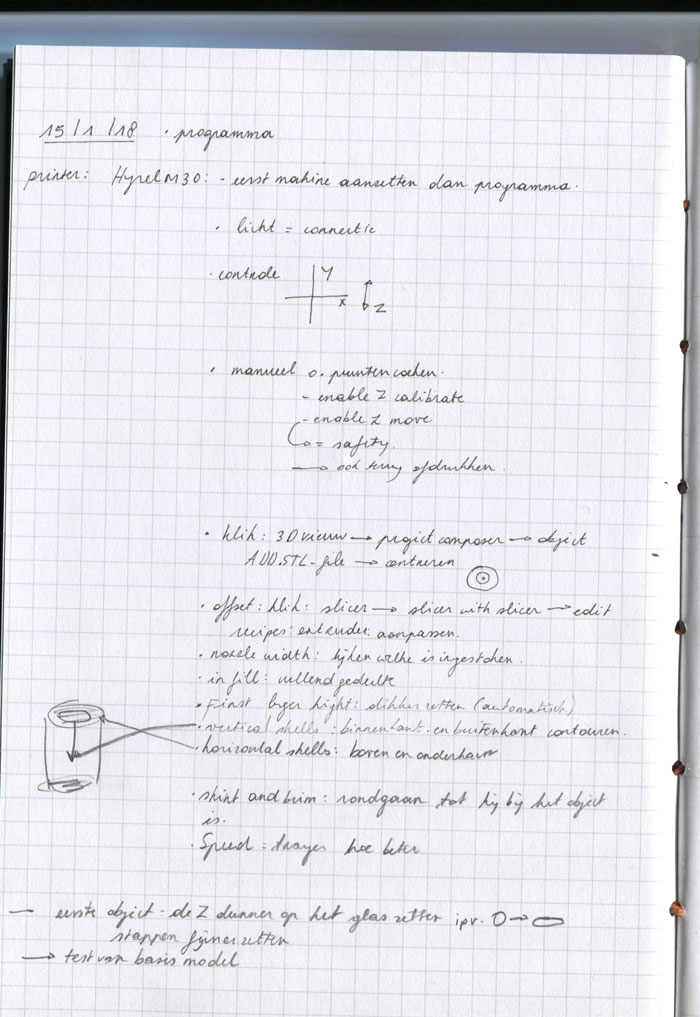 15/1/18 · programma
printer: Hyrel M30: - eerst machine aanzetten dan programma.
· licht = connectie
· controle Y
x Z
· manueel 0. punten zoeken.
- enable Z calibrate
- enable Z move
= safety.
→ ook terug afdrukken
· klik: 3D view → project composer → object
ADD.STL-file → centreren
· offset: klik: slicer → slicer with slicer → edit
recipes: extruder aanpassen.
· nozzle width: kijken welke is ingestoken.
· infill: vullend gedeelte
· First layer hight: dikker zetten (automatisch)
· vertical shells: binnenkant en buitenkant contouren.
· horizontal shells: boven en onderkant
· skirt and brim: rondgaan tot hij bij het object
is.
· Speed: trager hoe beter
— eerste object - de Z dunner op het glas zetten ipv. O → 
stappen fijner zetten
→ test van basis model